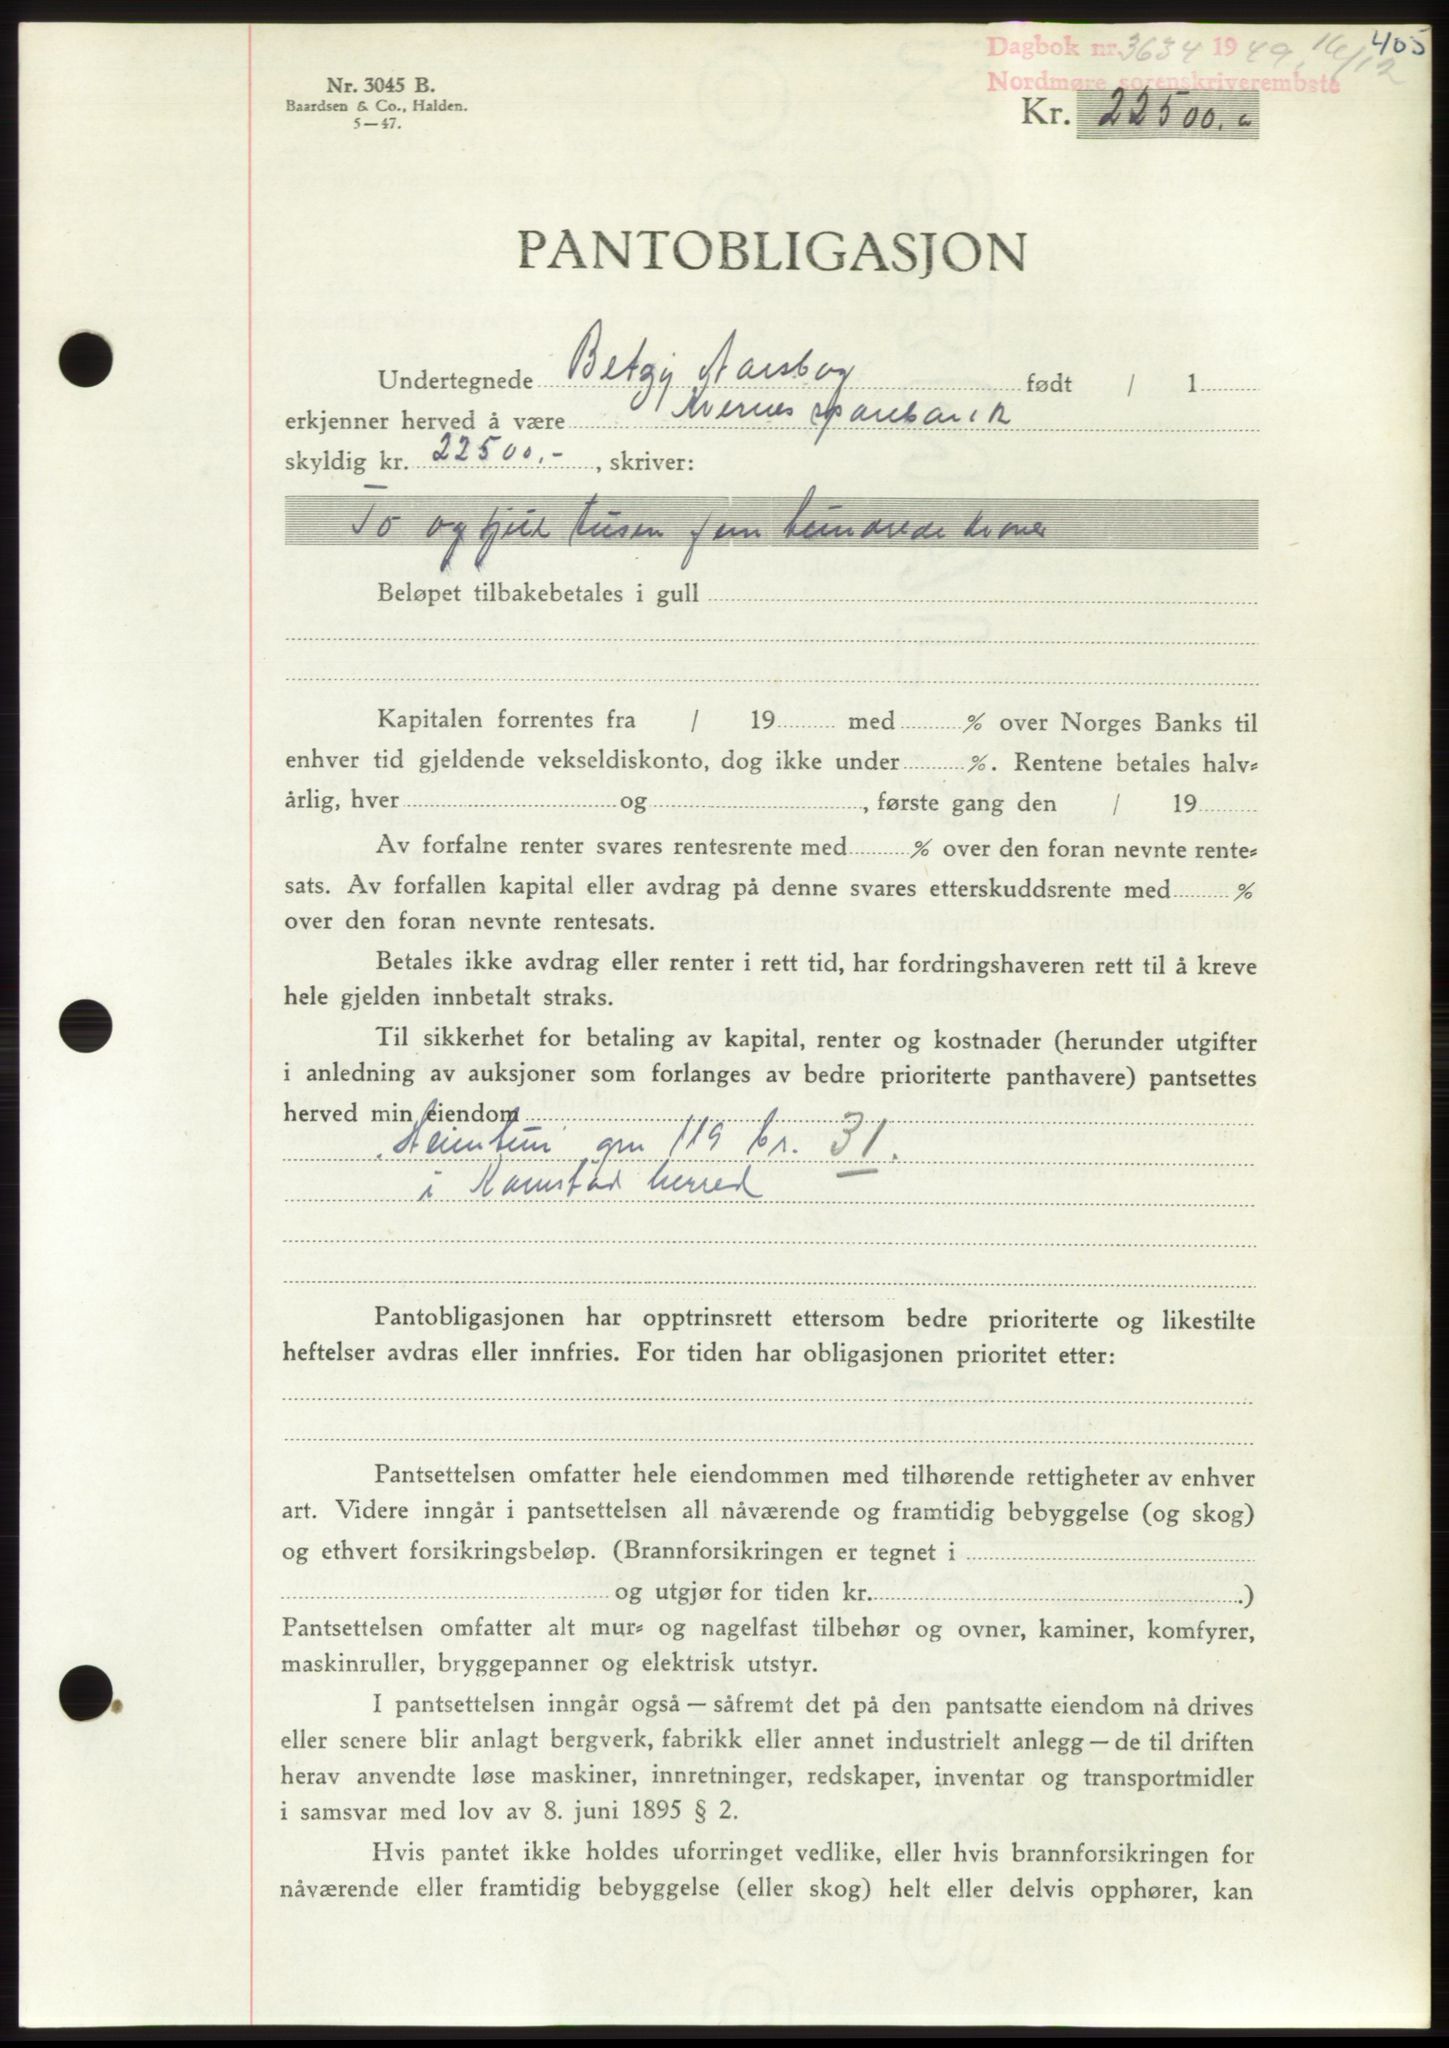 405
Dagbok nr. 3634 1949, 16/12
Nordmøre sorenskriverembete
Nr. 3045 B.
Baardsen & Co., Halden.
5—47.
Kr. 22500.-
PANTOBLIGASJON
Undertegnede Betzy Aarsbog født / 1
erkjenner herved å være Kvernes sparebank
skyldig kr. 22500.-, skriver:
To og tjue tusen fem hundrede kroner
Beløpet tilbakebetales i gull
Kapitalen forrentes fra / 19 med % over Norges Banks til
enhver tid gjeldende vekseldiskonto, dog ikke under %. Rentene betales halv-
årlig, hver og , første gang den / 19
Av forfalne renter svares rentesrente med % over den foran nevnte rente-
sats. Av forfallen kapital eller avdrag på denne svares etterskuddsrente med %
over den foran nevnte rentesats.
Betales ikke avdrag eller renter i rett tid, har fordringshaveren rett til å kreve
hele gjelden innbetalt straks.
Til sikkerhet for betaling av kapital, renter og kostnader (herunder utgifter
i anledning av auksjoner som forlanges av bedre prioriterte panthavere) pantsettes
herved min eiendom
"Heimtun" gnr 119 br. 31.
i herred
Pantobligasjonen har opptrinsrett ettersom bedre prioriterte og likestilte
heftelser avdras eller innfries. For tiden har obligasjonen prioritet etter:
Pantsettelsen omfatter hele eiendommen med tilhørende rettigheter av enhver
art. Videre inngår i pantsettelsen all nåværende og framtidig bebyggelse (og skog)
og ethvert forsikringsbeløp. (Brannforsikringen er tegnet i
og utgjør for tiden kr. .)
Pantsettelsen omfatter alt mur- og nagelfast tilbehør og ovner, kaminer, komfyrer,
maskinruller, bryggepanner og elektrisk utstyr.
I pantsettelsen inngår også — såfremt det på den pantsatte eiendom nå drives
eller senere blir anlagt bergverk, fabrikk eller annet industrielt anlegg — de til driften
herav anvendte løse maskiner, innretninger, redskaper, inventar og transportmidler
i samsvar med lov av 8. juni 1895 § 2.
Hvis pantet ikke holdes uforringet vedlike, eller hvis brannforsikringen for
nåværende eller framtidig bebyggelse (eller skog) helt eller delvis opphører, kan